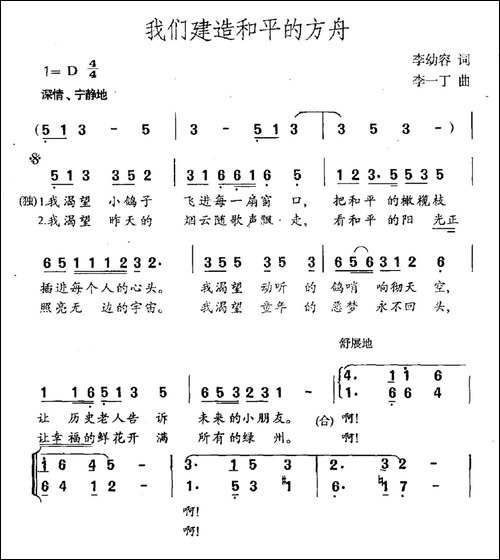 我们建造和平的方舟
1=D 4/4
李幼容 词
李一丁 曲
深情、宁静地
( 5 1 3 - 5 | 3 - 5 1 3 | 3 5 3 5 - )
5 1 3 3 5 2 | 3 1 6 6 1 6 5 | 1 2 3. 5 5 3 5
(独) 1.我渴望 小鸽子 飞进每一扇窗 口, 把和平 的橄榄枝
2.我渴望 昨天的 烟云随歌声飘 走, 看和平 的阳 光正
6 5 1 1 1 2 3 2. | 3 5 5 3 5 5 | 6 5 6 3 1 2 6
插进每个人的心头。 我渴望 动听的 鸽哨 响彻天空,
照亮无 边的宇宙。 我渴望 童年的 恶梦 永不回 头,
舒展地
4. 1 1 6
1 1 6 5 1 3 5 | 6 5 3 2 3 1 - | 1. 6 6 6
让 历史老人告 诉 未来的小朋友。 (合) 啊!
让幸福的鲜花开 满 所有的绿 州。 啊!
1 6 4 5 - | 3. 1 5 3 | 2. 3 2 -
6 4 1 2 - | 1. 5 3 #1 | 6. 1 6 -
啊!
啊!